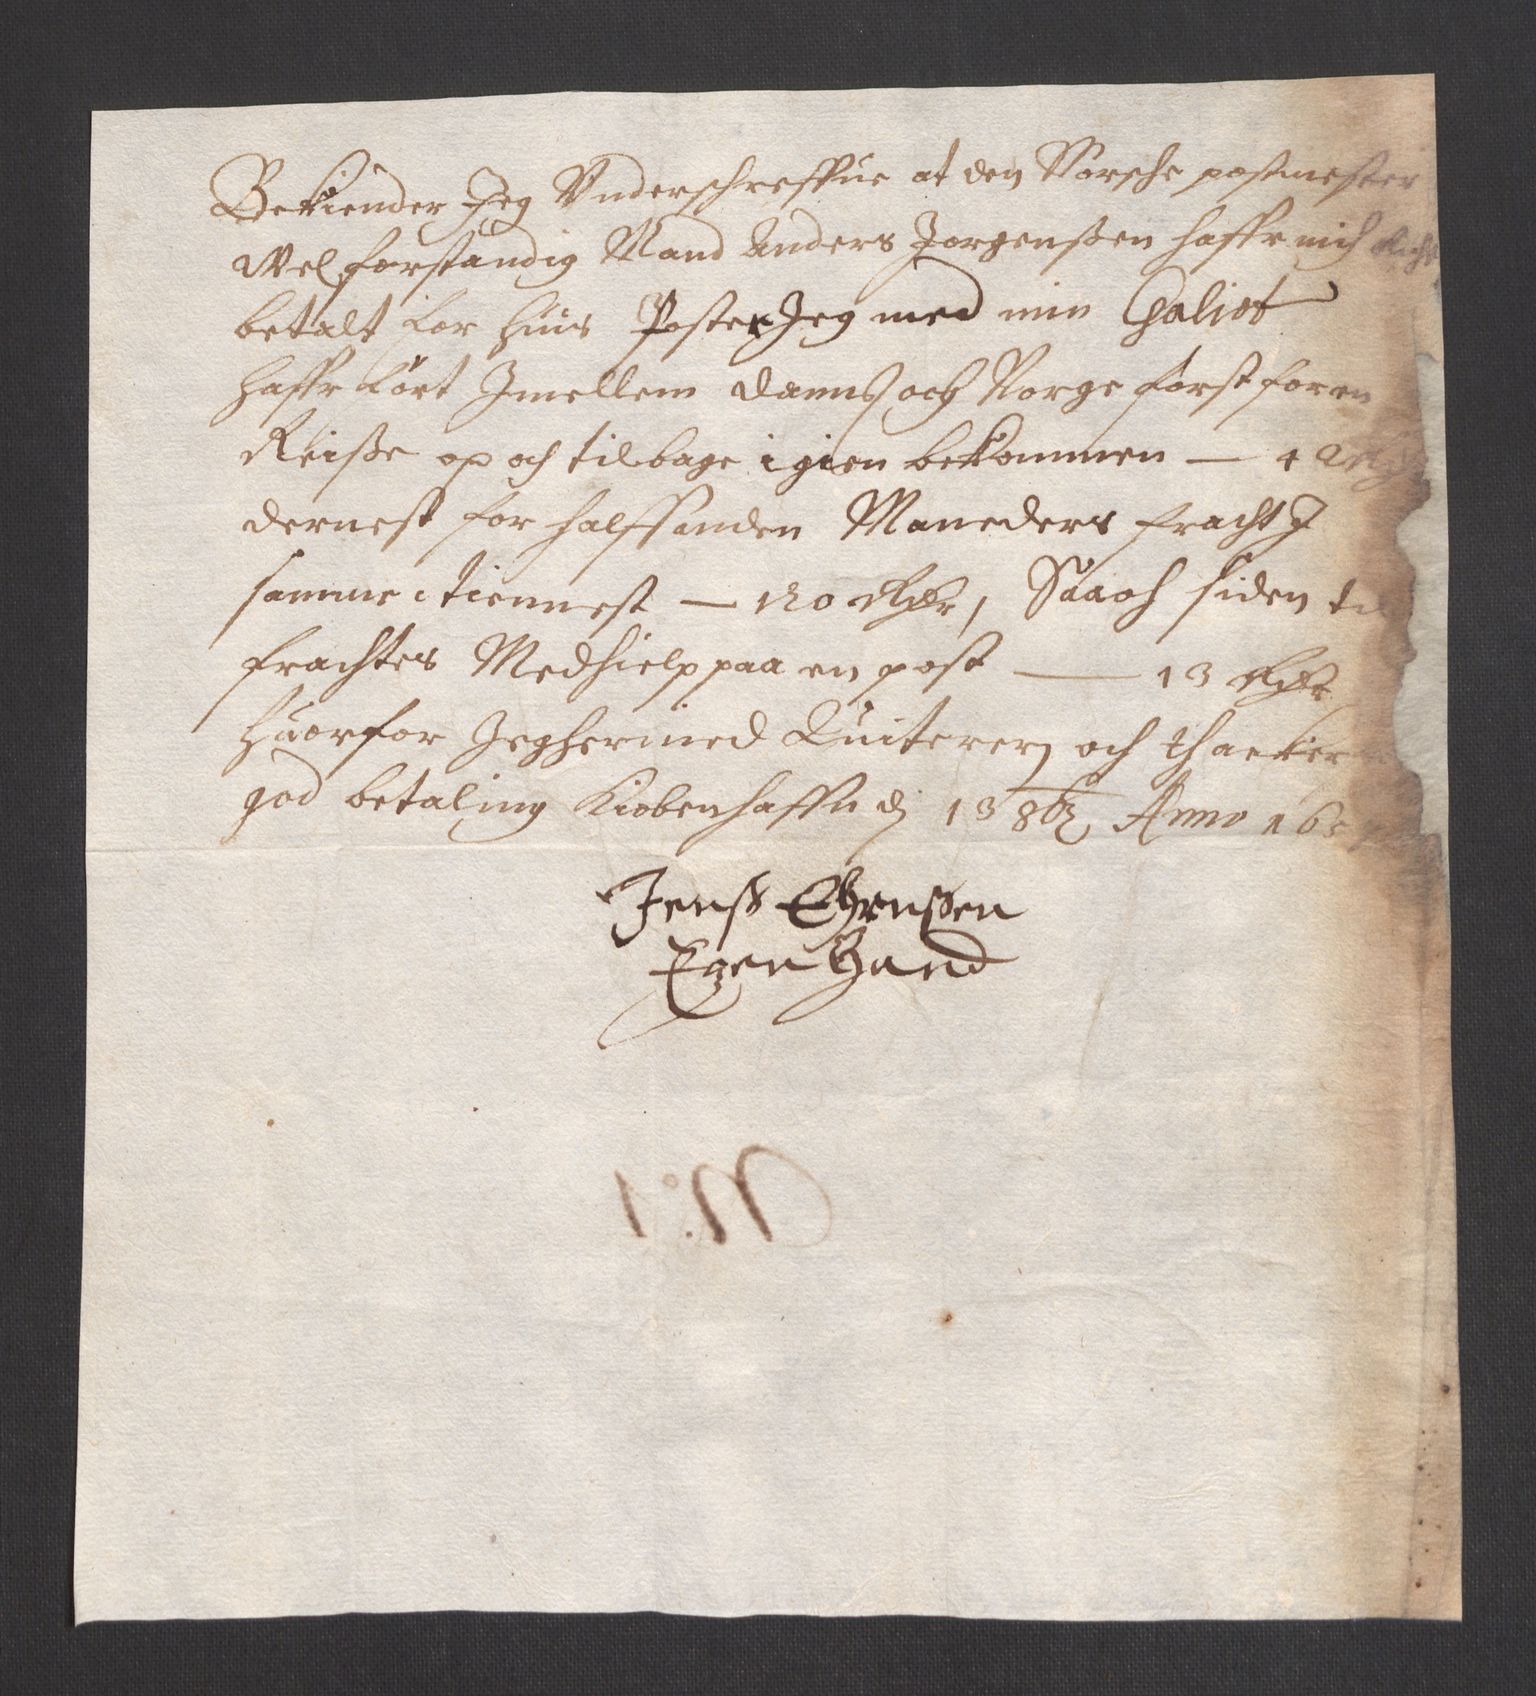 Bekiender Jeg Vnderschreffue at den Norsche postmester
Welforstandig Mand Anders Jorgenssen haffr mich
betalt for huis Poster Jeg med min Galiot
haffr fört Jmellem Danm och Norge forst for en
Reisse op och tilbage igien bekommen —
dernest for halffanden Maneders fracht J
samme tiennest — 120 Rdr, Saa och siden til
frachtes Medhielp paa en post — 13 Rdr
Huorfor Jeg hermed Quiterer och thacker
god betaling Kiobenhaffn dj 13 8br Anno 165
Jenss Ehrnssen
Egen Hand
N: 1